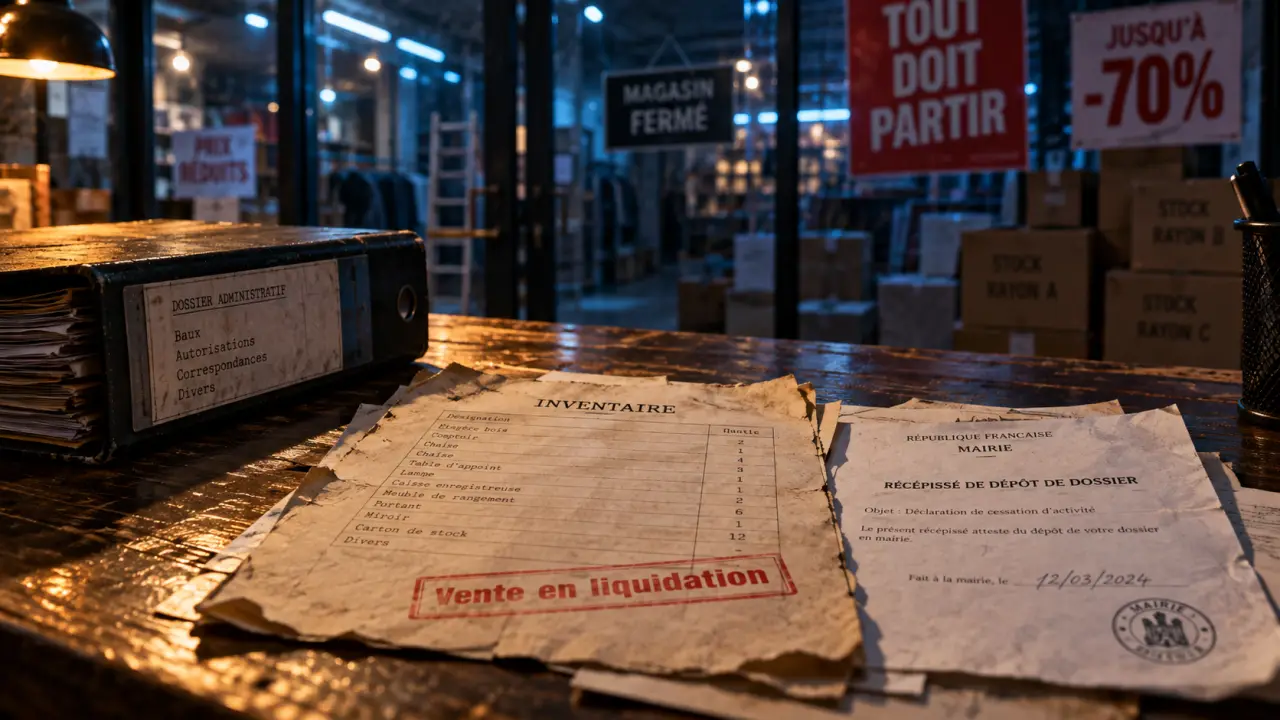 TOUT
DOIT
PARTIR
JUSQU'À
-70%
MAGASIN
FERMÉ
PRIX
RÉDUITS
STOCK
RAYON A
STOCK
RAYON B
STOCK
RAYON C
DOSSIER ADMINISTRATIF
Baux
Autorisations
Correspondances
Divers
INVENTAIRE
Désignation
Étagère bois
Comptoir 2
Chaise 1
Chaise 4
Table d'appoint 3
Lampe 1
Caisse enregistreuse 1
Meuble de rangement 2
Portant 6
Miroir 1
Carton de stock 12
Divers -
Vente en liquidation
RÉPUBLIQUE FRANÇAISE
MAIRIE
RÉCÉPISSÉ DE DÉPÔT DE DOSSIER
Objet : Déclaration de cessation d'activité
Le présent récépissé atteste du dépôt de votre dossier
en mairie.
Fait à la mairie, le 12/03/2024
MAIRIE